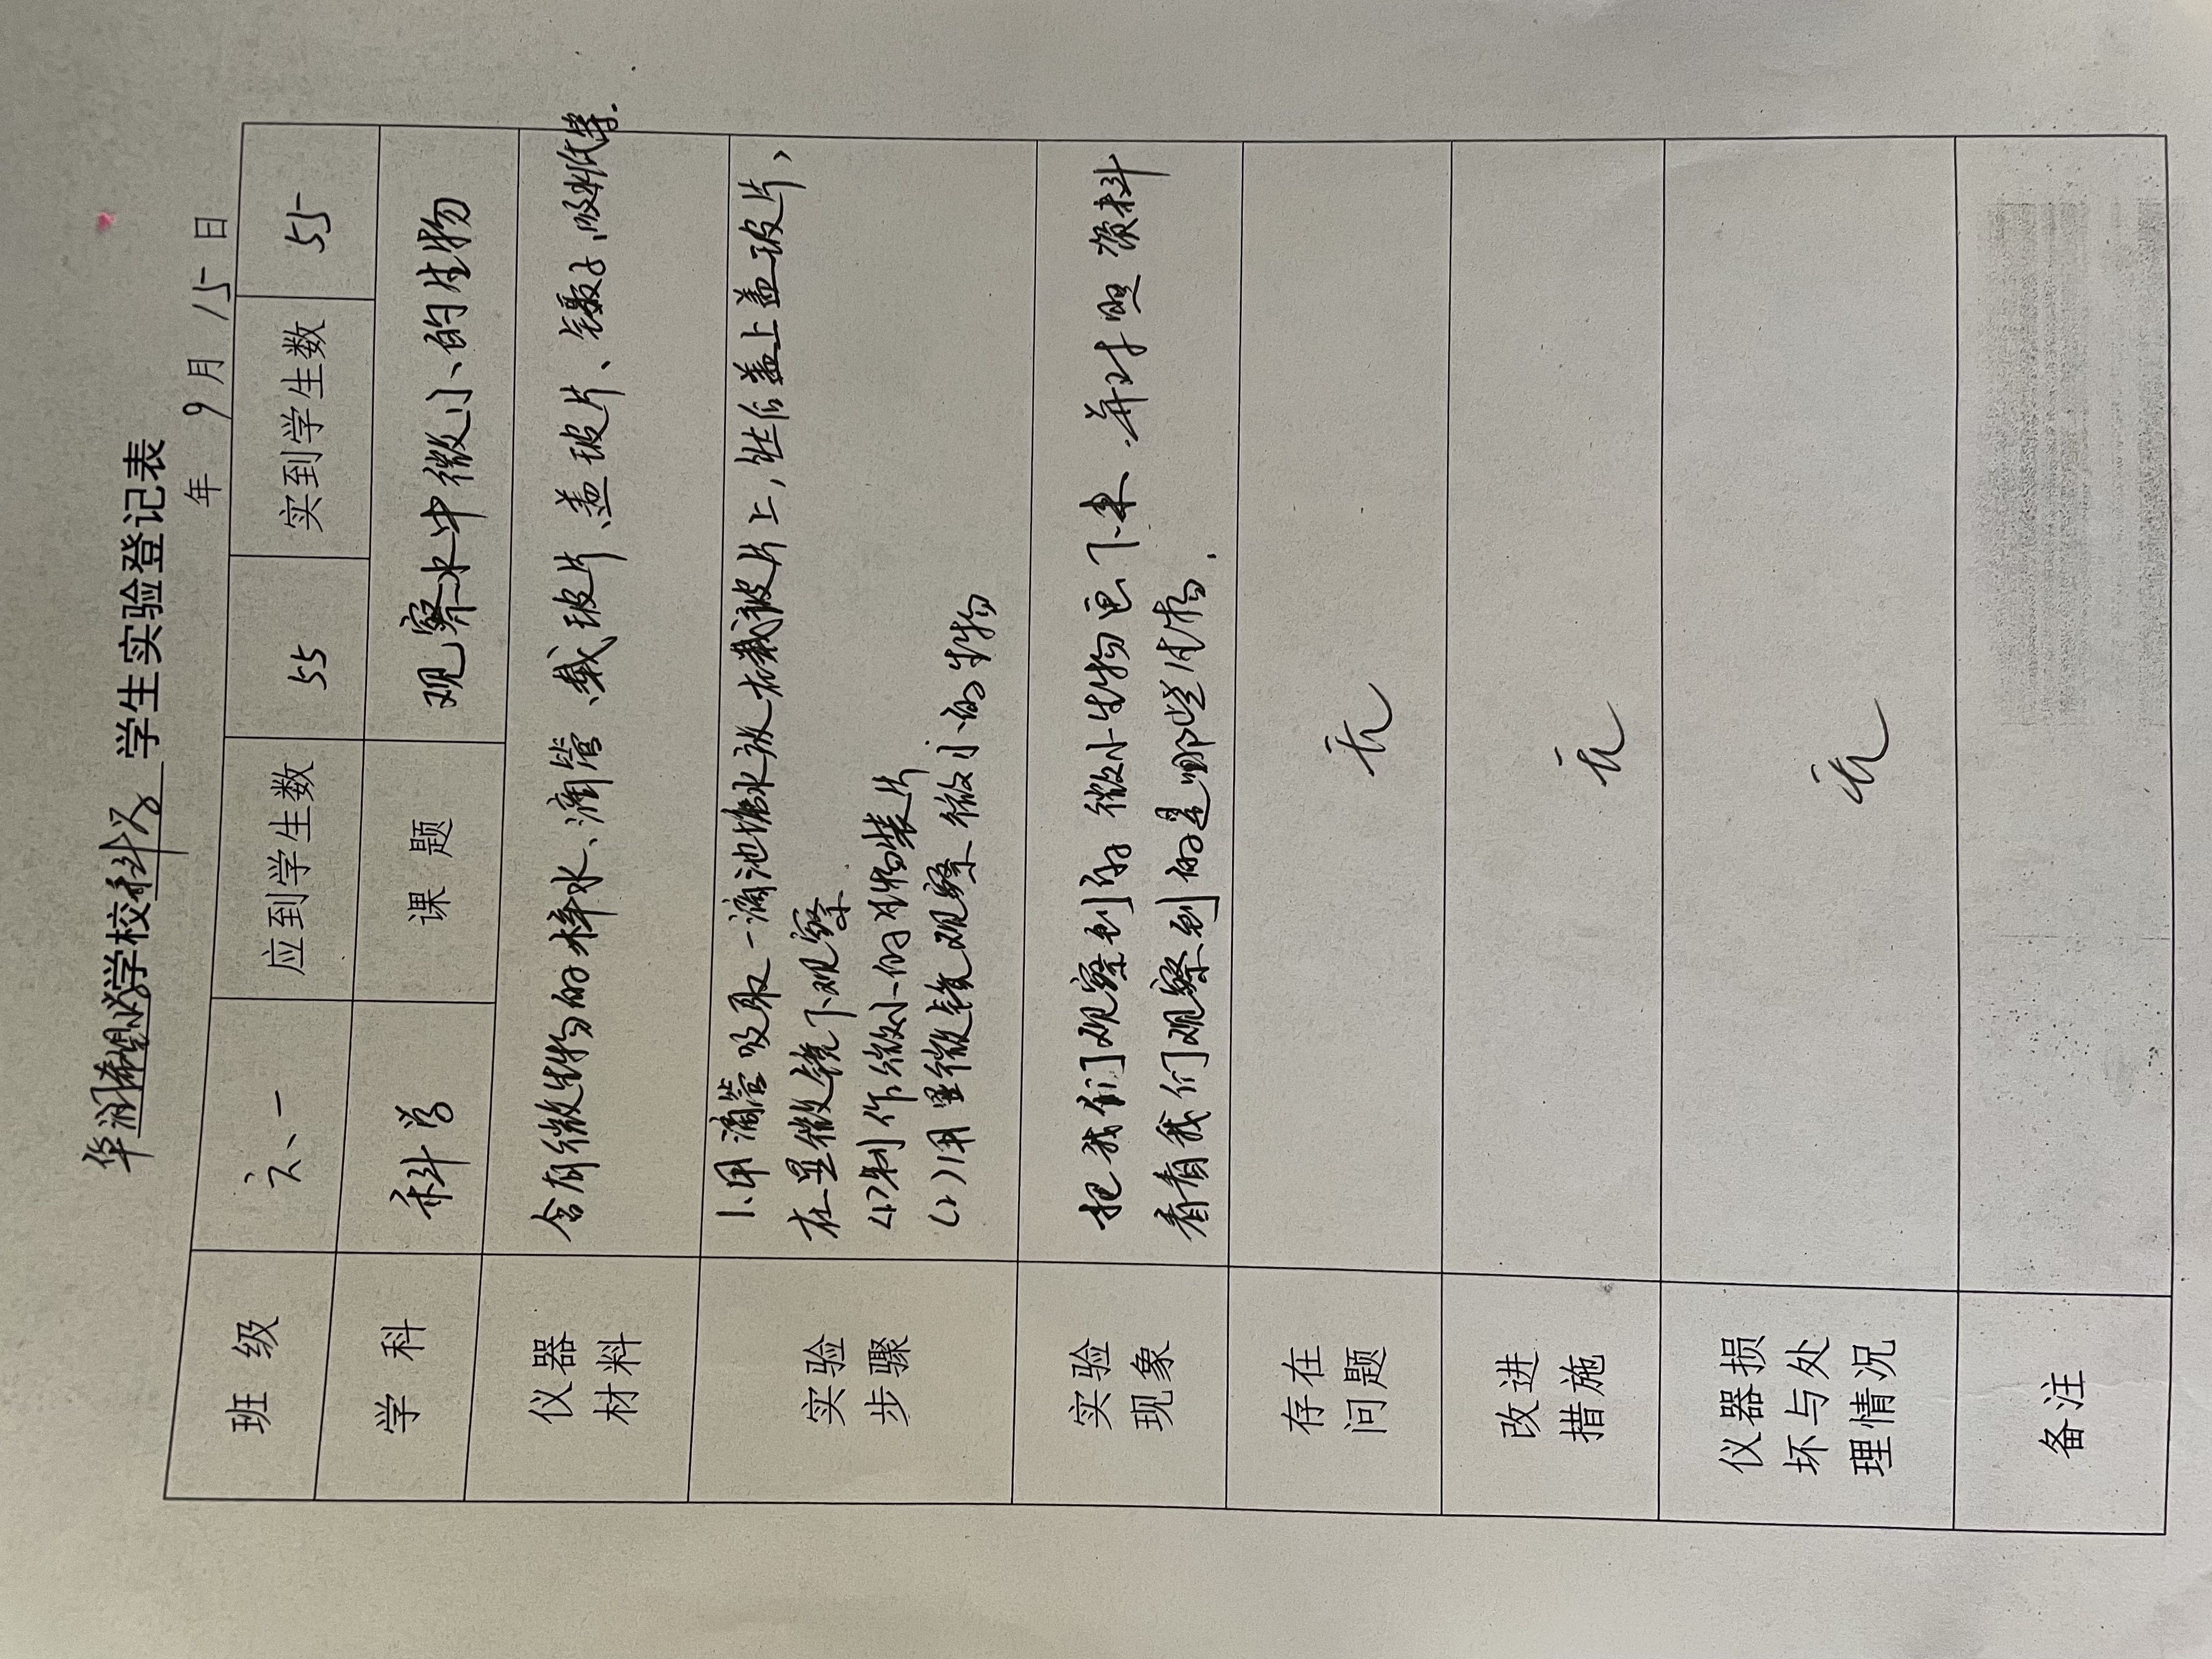 华润希望小学学校科学 学生实验登记表
年 9月 15日
班 级 六、一 应到学生数 55 实到学生数 55
学 科 科学 课 题 观察水中微小的生物
仪器
材料
含有微生物的样水、滴管、载玻片、盖玻片、镊子、吸水纸等.
实验
步骤
1.用滴管吸取一滴池塘水放在载玻片上,然后盖上盖玻片,
在显微镜下观察.
(1)制作微小的生物装片
(2)用显微镜观察微小的生物
实验
现象
把我们观察到的微小生物画下来.并对照资料
看看我们观察到的是哪些生物.
存在
问题
无
改进
措施
无
仪器损
坏与处
理情况
无
备注